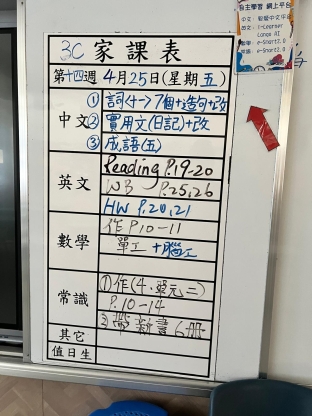 3C 家課表
第十四週 4月25日(星期五)
中文
① 詞(十一) 7個+造句+改
② 實用文(日記)+改
③ 成語(五)
英文
Reading P.19-20
WB P.25,26
HW P.20,21
數學
作 P10-11
單工 +腦工
常識
①作(4.單元二)
P.10-14
② 帶新書6冊
其它
值日生
自主學習 網上平台
英文: i-Learner